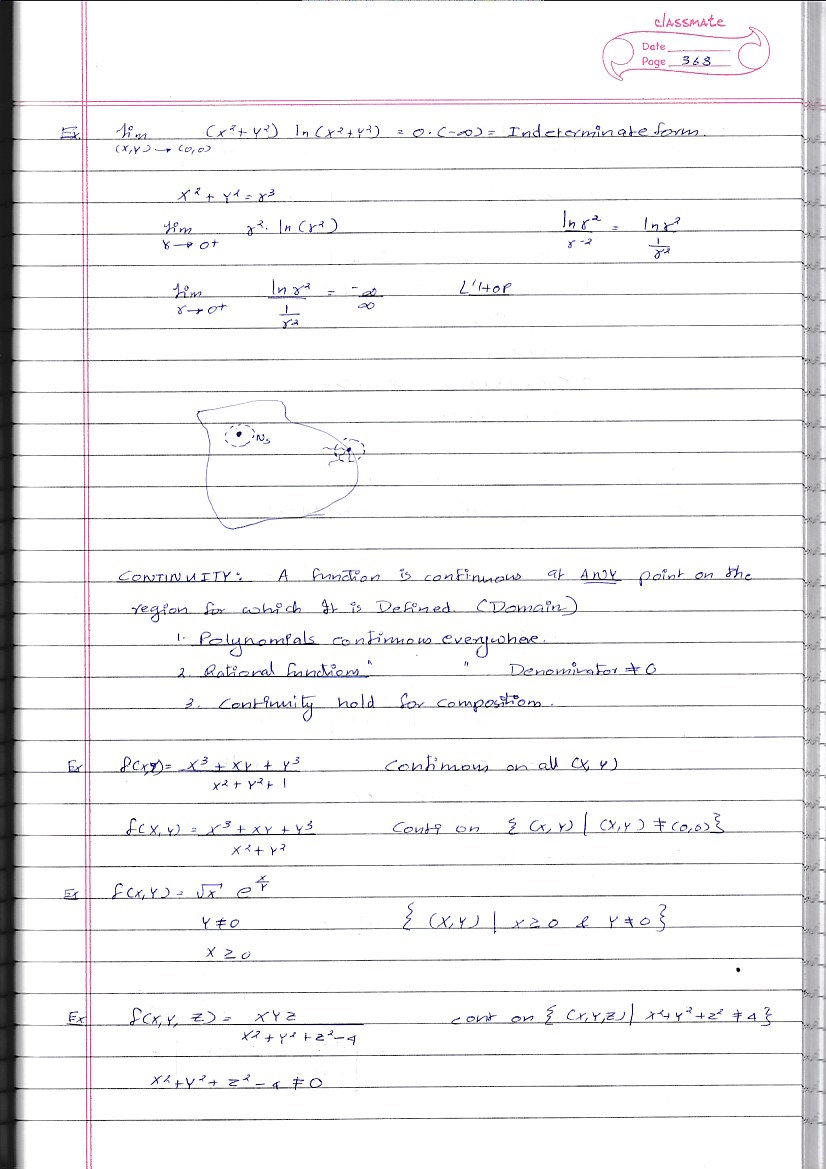 classmate
Date
Page 363
Ex. lim (x²+y²) ln(x²+y²) = 0·(-∞) = Indeterminate form.
(x,y)→(0,0)
x² + y² = r²
lim r² · ln(r²) ln r² / r⁻² = ln r² / (1/r²)
r→0+
lim ln r² / (1/r²) = -∞/∞ L'HOP
r→0+
CONTINUITY: A function is continuous at ANY point on the
region for which It is Defined. (Domain)
1. Polynomials continuous everywhere.
2. Rational functions " " Denominator ≠ 0
3. Continuity hold for compositions.
Ex f(x,y) = (x³ + xy + y³) / (x² + y² + 1) Continuous on all (x,y)
f(x,y) = (x³ + xy + y³) / (x² + y²) Conti on {(x,y) | (x,y) ≠ (0,0)}
Ex f(x,y) = √x e^(x/y)
y ≠ 0 {(x,y) | x ≥ 0 & y ≠ 0}
x ≥ 0
Ex f(x,y,z) = xyz / (x² + y² + z² - 4) cont on {(x,y,z) | x²+y²+z² ≠ 4}
x²+y²+z²-4 ≠ 0